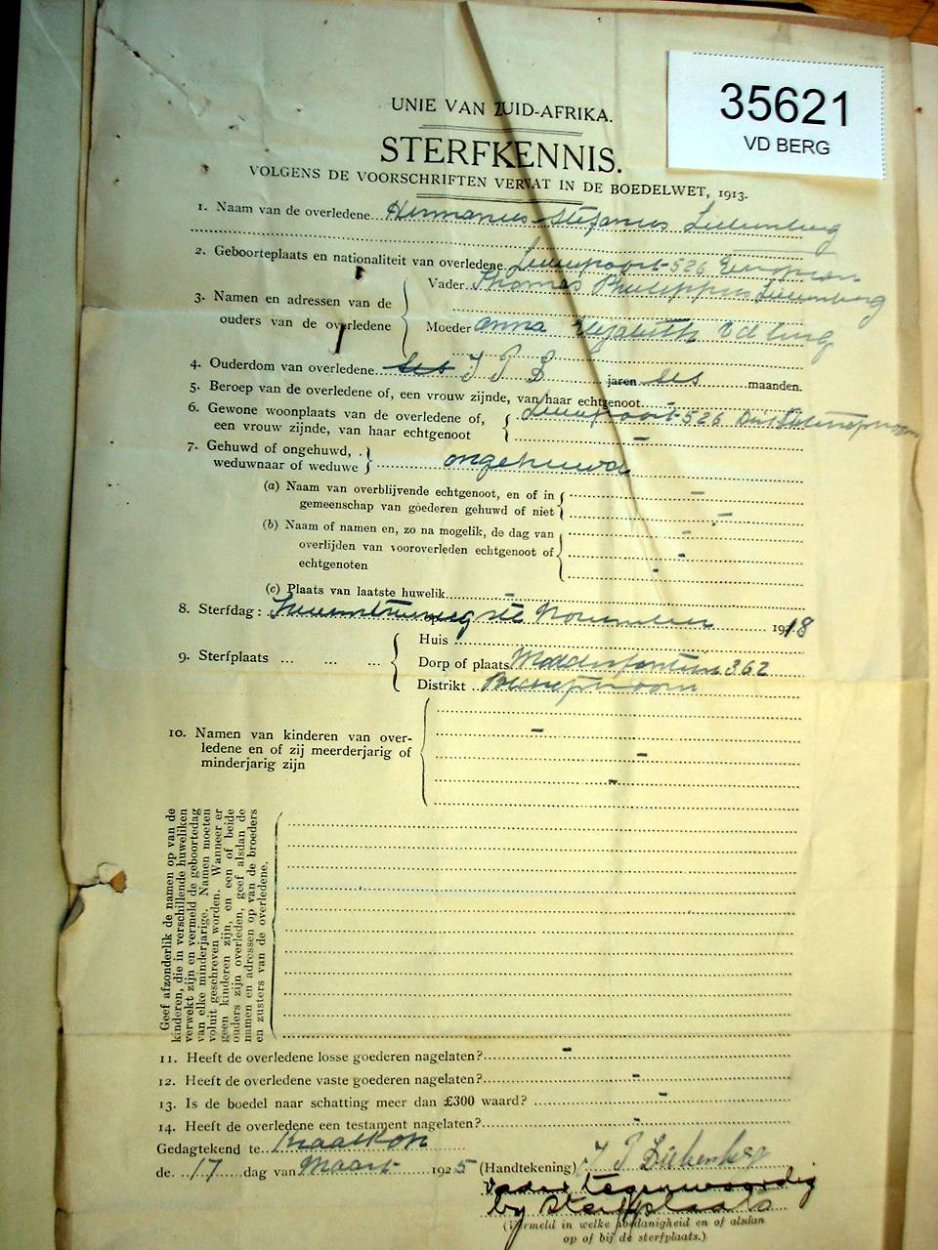 35621
VD BERG
UNIE VAN ZUID-AFRIKA.
STERFKENNIS.
VOLGENS DE VOORSCHRIFTEN VERVAT IN DE BOEDELWET, 1913.
1. Naam van de overledene Hermanus Stefanus Liebenberg
2. Geboorteplaats en nationaliteit van overledene Leeuwpoort 526 European
3. Namen en adressen van de ouders van de overledene
Vader Thomas Phillippus Liebenberg
Moeder Anna Elizabeth Vd Berg
4. Ouderdom van overledene ses T P L jaren ses maanden.
5. Beroep van de overledene of, een vrouw zijnde, van haar echtgenoot.
6. Gewone woonplaats van de overledene of, Leeuwpoort 526
een vrouw zijnde, van haar echtgenoot -
7. Gehuwd of ongehuwd,
weduwnaar of weduwe ongehuwd
(a) Naam van overblijvende echtgenoot, en of in -
gemeenschap van goederen gehuwd of niet -
(b) Naam of namen en, zo na mogelik, de dag van -
overlijden van vooroverleden echtgenoot of -
echtgenoten -
(c) Plaats van laatste huwelik -
8. Sterfdag: November 1918
9. Sterfplaats ... ... ...
Huis
Dorp of plaats Modderfontein 362
Distrikt
10. Namen van kinderen van over- -
ledene en of zij meerderjarig of -
minderjarig zijn -
Geef afzonderlik de namen op van de
kinderen, die in verschillende huweliken
verwekt zijn en vermeld de geboortedag
van elke minderjarige. Namen moeten
voluit geschreven worden. Wanneer er
geen kinderen zijn, en een of beide
ouders zijn overleden, geef alsdan de
namen en adressen op van de broeders
en zusters van de overledene.
11. Heeft de overledene losse goederen nagelaten? -
12. Heeft de overledene vaste goederen nagelaten? -
13. Is de boedel naar schatting meer dan £300 waard? -
14. Heeft de overledene een testament nagelaten? -
Gedagtekend te Kraalkop
de 17 dag van Maart 1925 (Handtekening) T P Liebenberg
vader tegenwoordig
by sterfplaats
(Vermeld in welke hoedanigheid en of alsdan
op of bij de sterfplaats.)